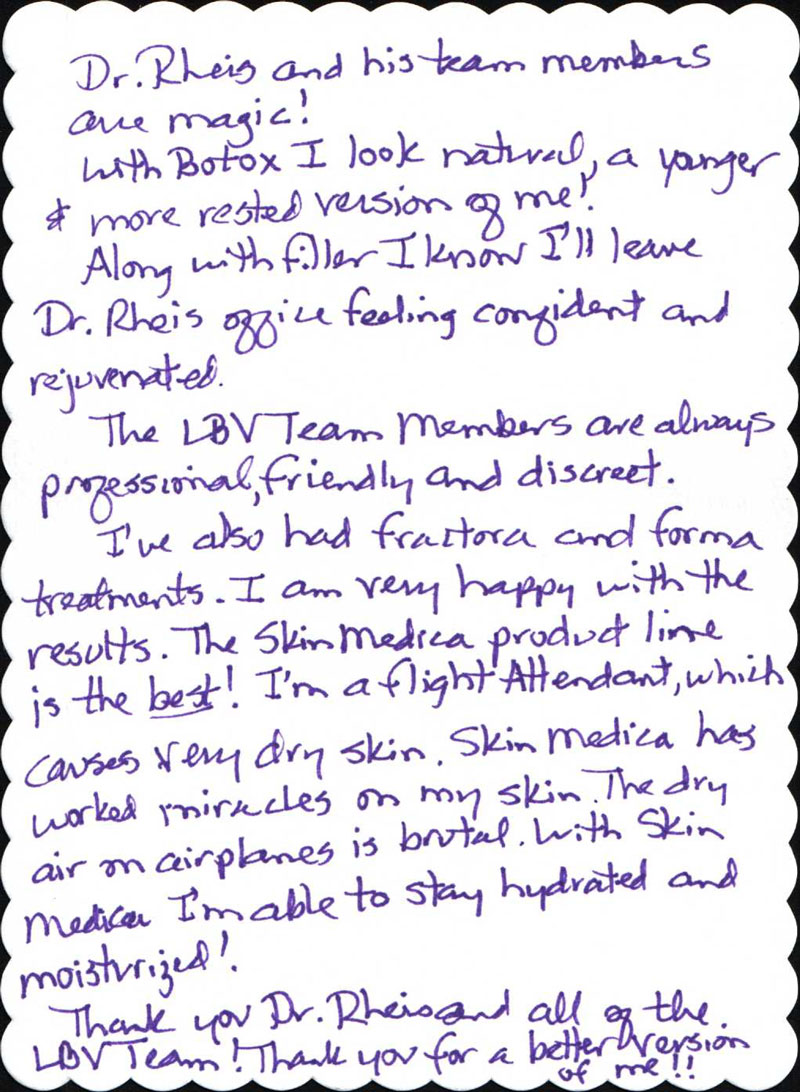 Dr. Rheis and his team members
are magic!
With Botox I look natural, a younger
& more rested version of me!
Along with filler I know I'll leave
Dr. Rheis office feeling confident and
rejuvenated.
The LBV Team Members are always
professional, friendly and discreet.
I've also had fractora and forma
treatments. I am very happy with the
results. The Skin Medica product line
is the best! I'm a flight Attendant, which
causes very dry skin. Skin Medica has
worked miracles on my skin. The dry
air on airplanes is brutal. With Skin
Medica I'm able to stay hydrated and
moisturized!
Thank you Dr. Rheis and all of the
LBV Team! Thank you for a better version
of me!!